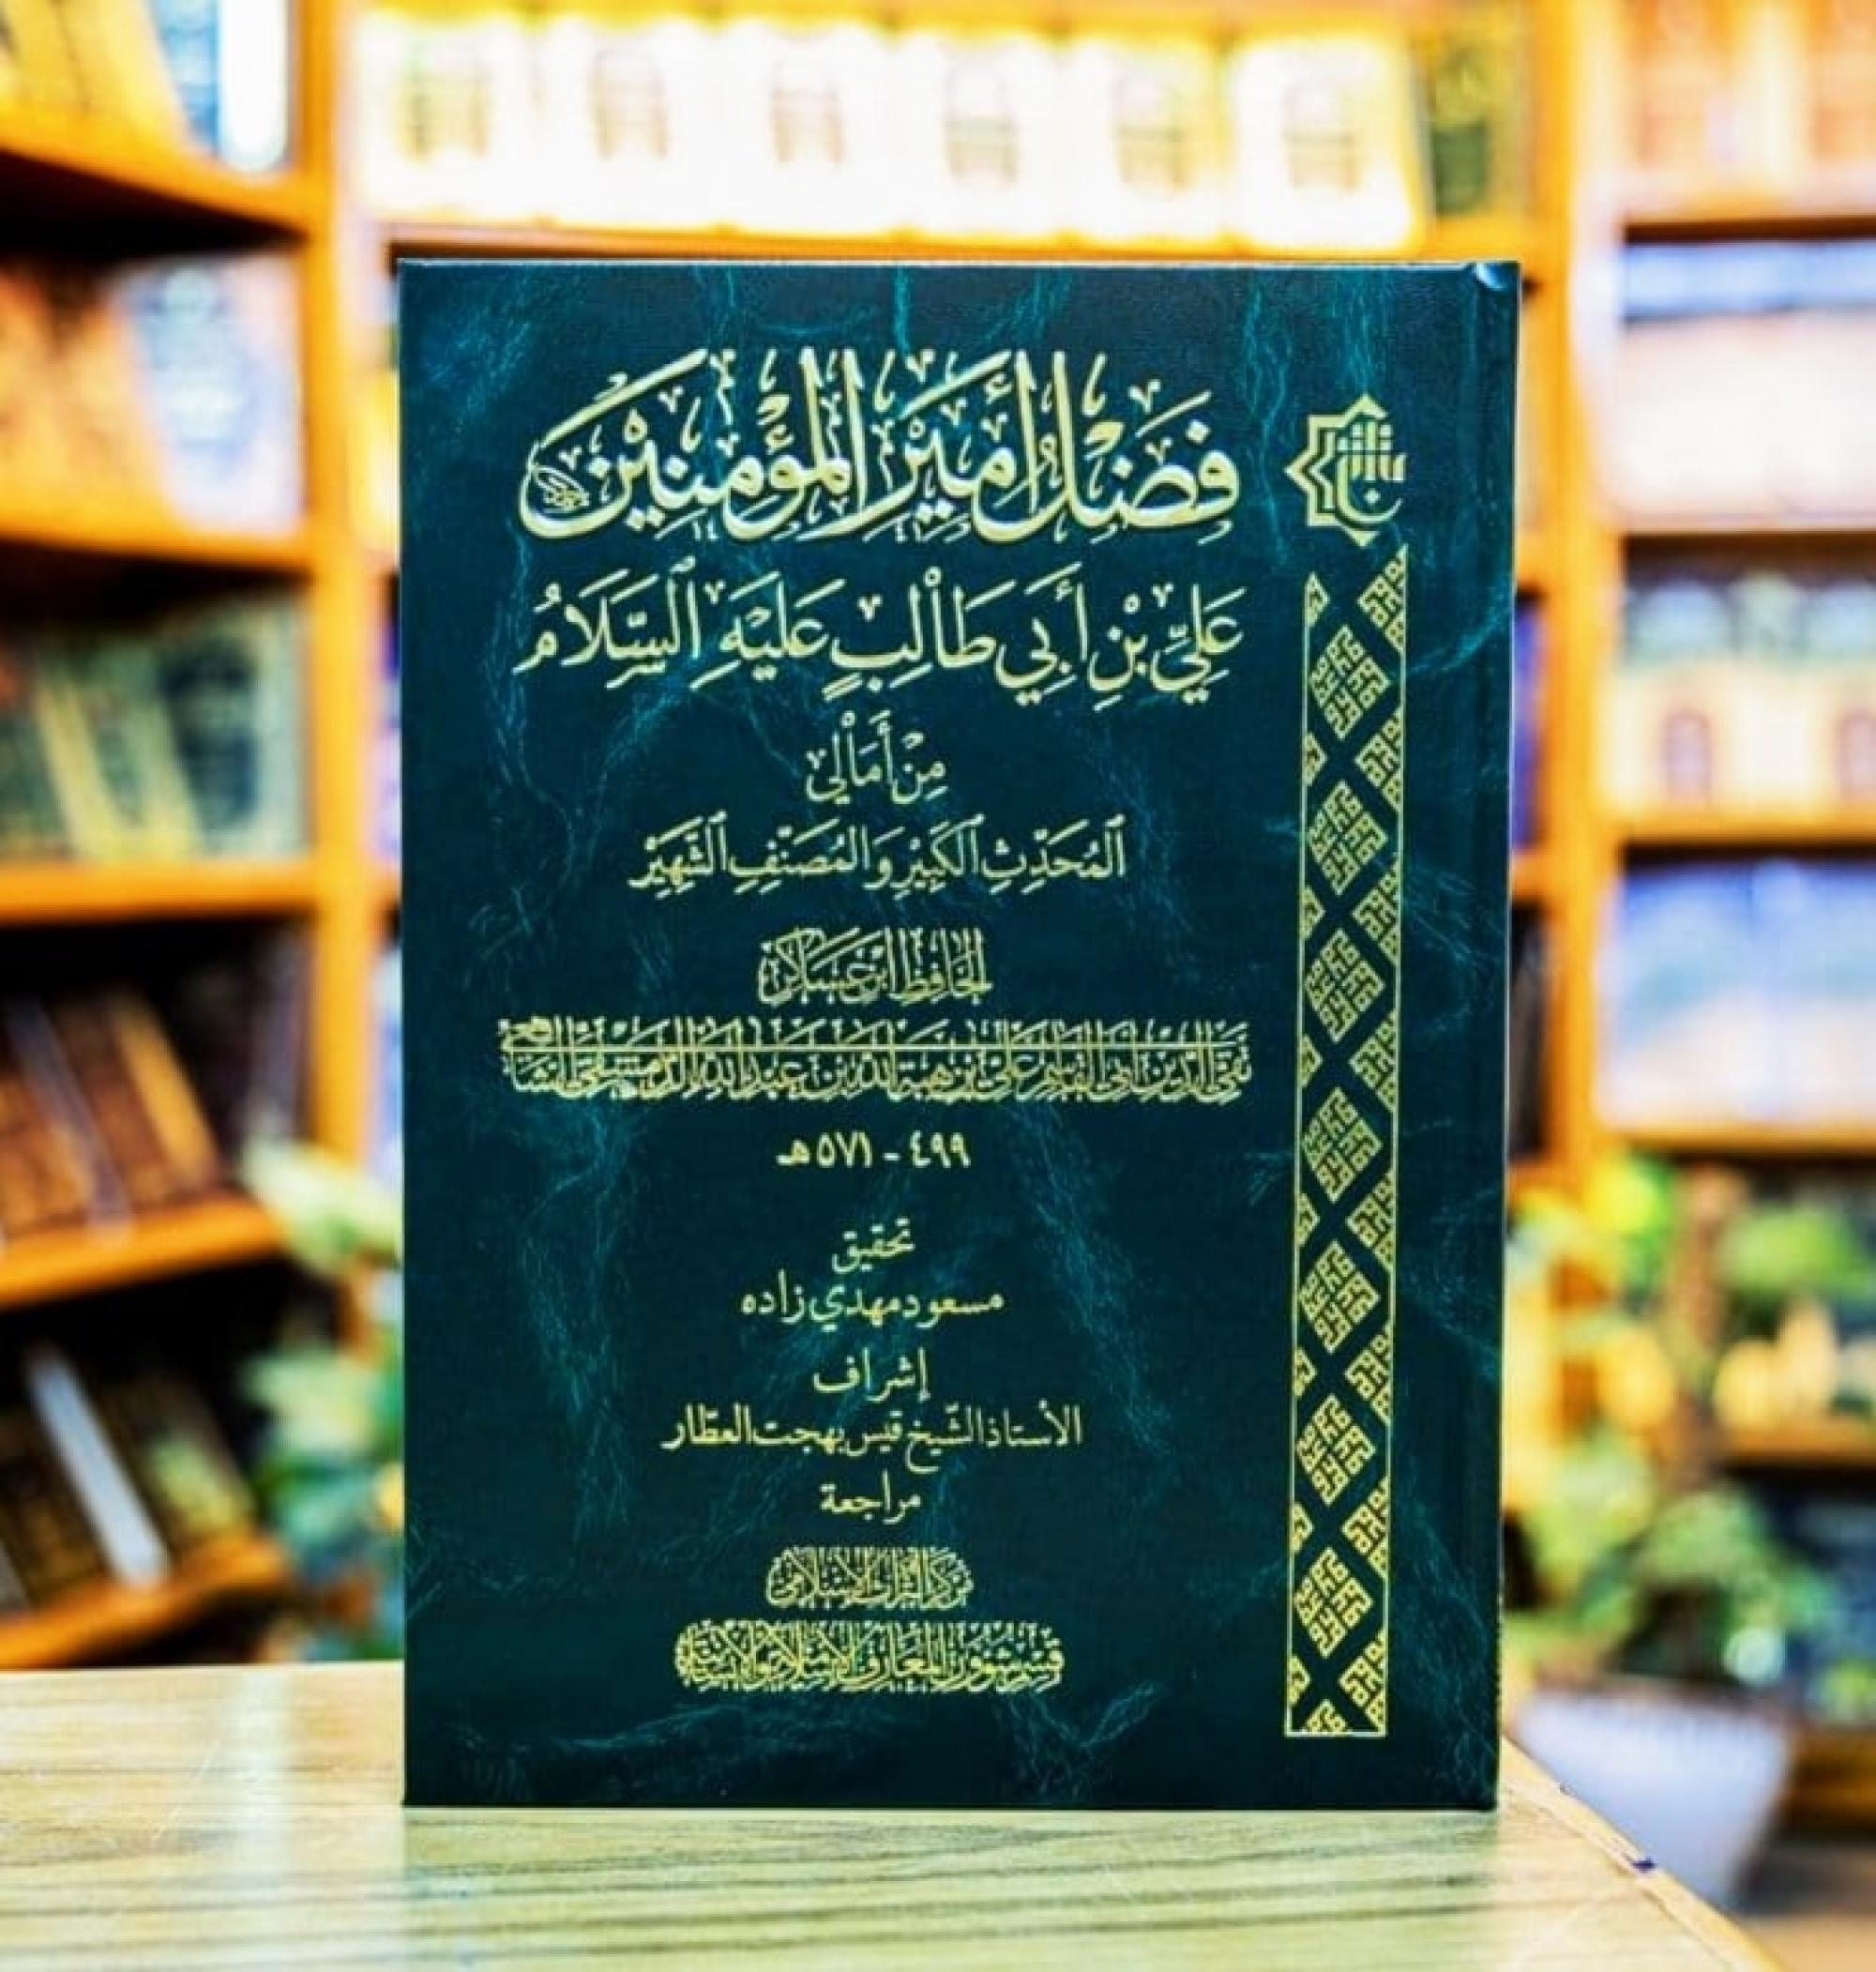 فَضْلُ أَمِيْرِ الْمُؤْمِنِيْنَ
عَلِيِّ بْنِ أَبِي طَاْلِبٍ عَلَيْهِ ٱلسَّلَامُ
مِنْ أَمَاْلِي
ٱلْمُحَدِّثِ ٱلْكَبِيْرِ وَالْمُصَنِّفِ ٱلشَّهِيْرِ
الحَافِظِ ابْنِ عَسَاكِرَ
ثقة الدين أبي القاسم علي بن هبة الله بن عبد الله الدمشقي الشافعي
٤٩٩ - ٥٧١ هـ
تحقيق
مسعود مهدي زاده
إشراف
الأستاذ الشّيخ قيس بهجت العطّار
مراجعة
مركز التراث الإسلامي
قسم شؤون المعارف الإسلامية والإنسانية